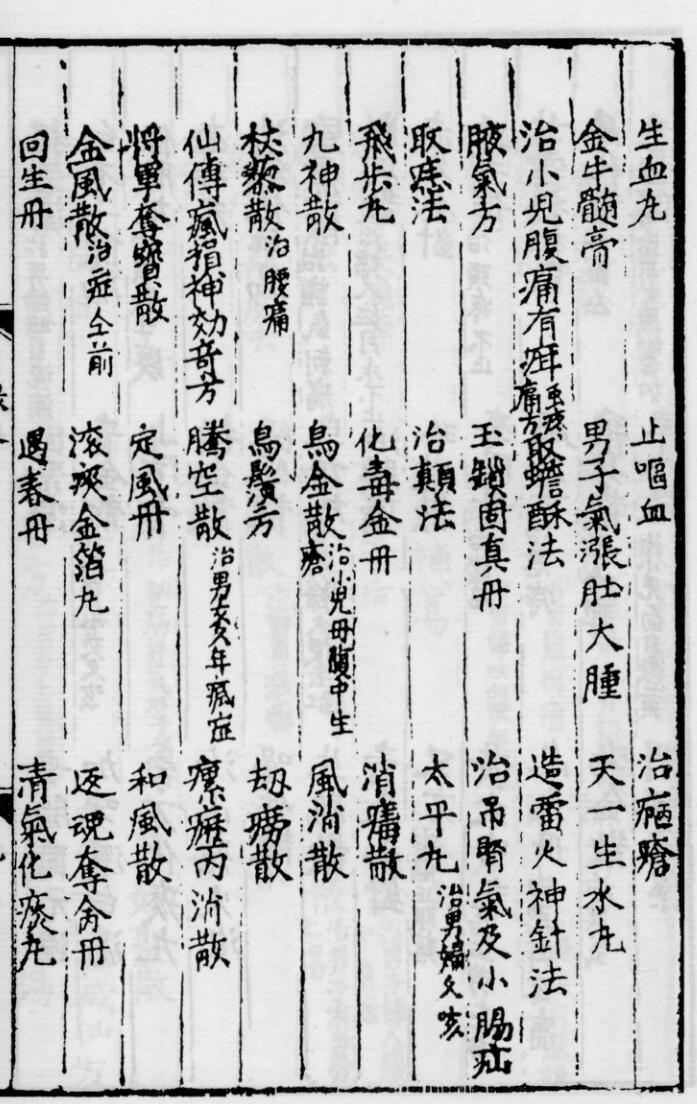 生血丸 止嘔血 治瘑瘡
金牛髓膏 男子氣漲肚大腫 天一生水丸
治小児腹痛有疳虫疼痛方 取蟾酥法 造雷火神針法
腋氣方 玉鎖固真丹 治吊腎氣及小腸疝
取痣法 治顛法 太平丸治男婦久咳
飛步丸 化毒金丹 消癰散
九神散 烏金散治小児母胸中生瘡 風消散
蒺藜散治腰痛 烏鬚方 劫癆散
仙傳瘋損神効奇方 騰空散治男女多年瘋症 瘰癧内消散
将軍奪寶散 定風丹 和風散
金風散治症仝前 滚痰金箔丸 返魂奪命丹
回生丹 遇春丹 清氣化痰丸